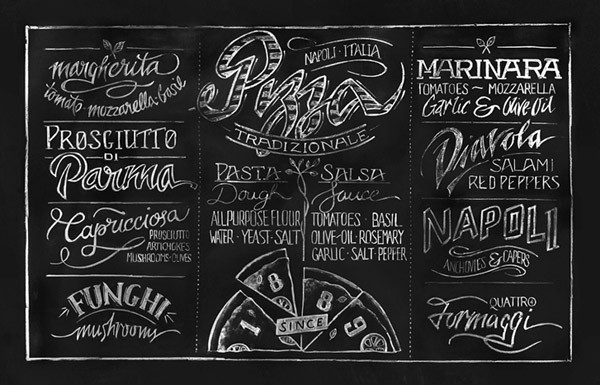 margherita
tomato mozzarella basil
PROSCIUTTO
DI
Parma
Capricciosa
PROSCIUTTO
ARTICHOKES
MUSHROOMS · OLIVES
FUNGHI
mushrooms
NAPOLI · ITALIA
Pizza
TRADIZIONALE
PASTA
Dough
ALLPURPOSE FLOUR
WATER · YEAST · SALT
SALSA
Sauce
TOMATOES · BASIL
OLIVE-OIL · ROSEMARY
GARLIC · SALT · PEPPER
1 8 8 9
SINCE
MARINARA
TOMATOES – MOZZARELLA
Garlic & Olive Oil
Diavola
SALAMI
RED PEPPERS
NAPOLI
ANCHOVIES & CAPERS
QUATTRO
Formaggi